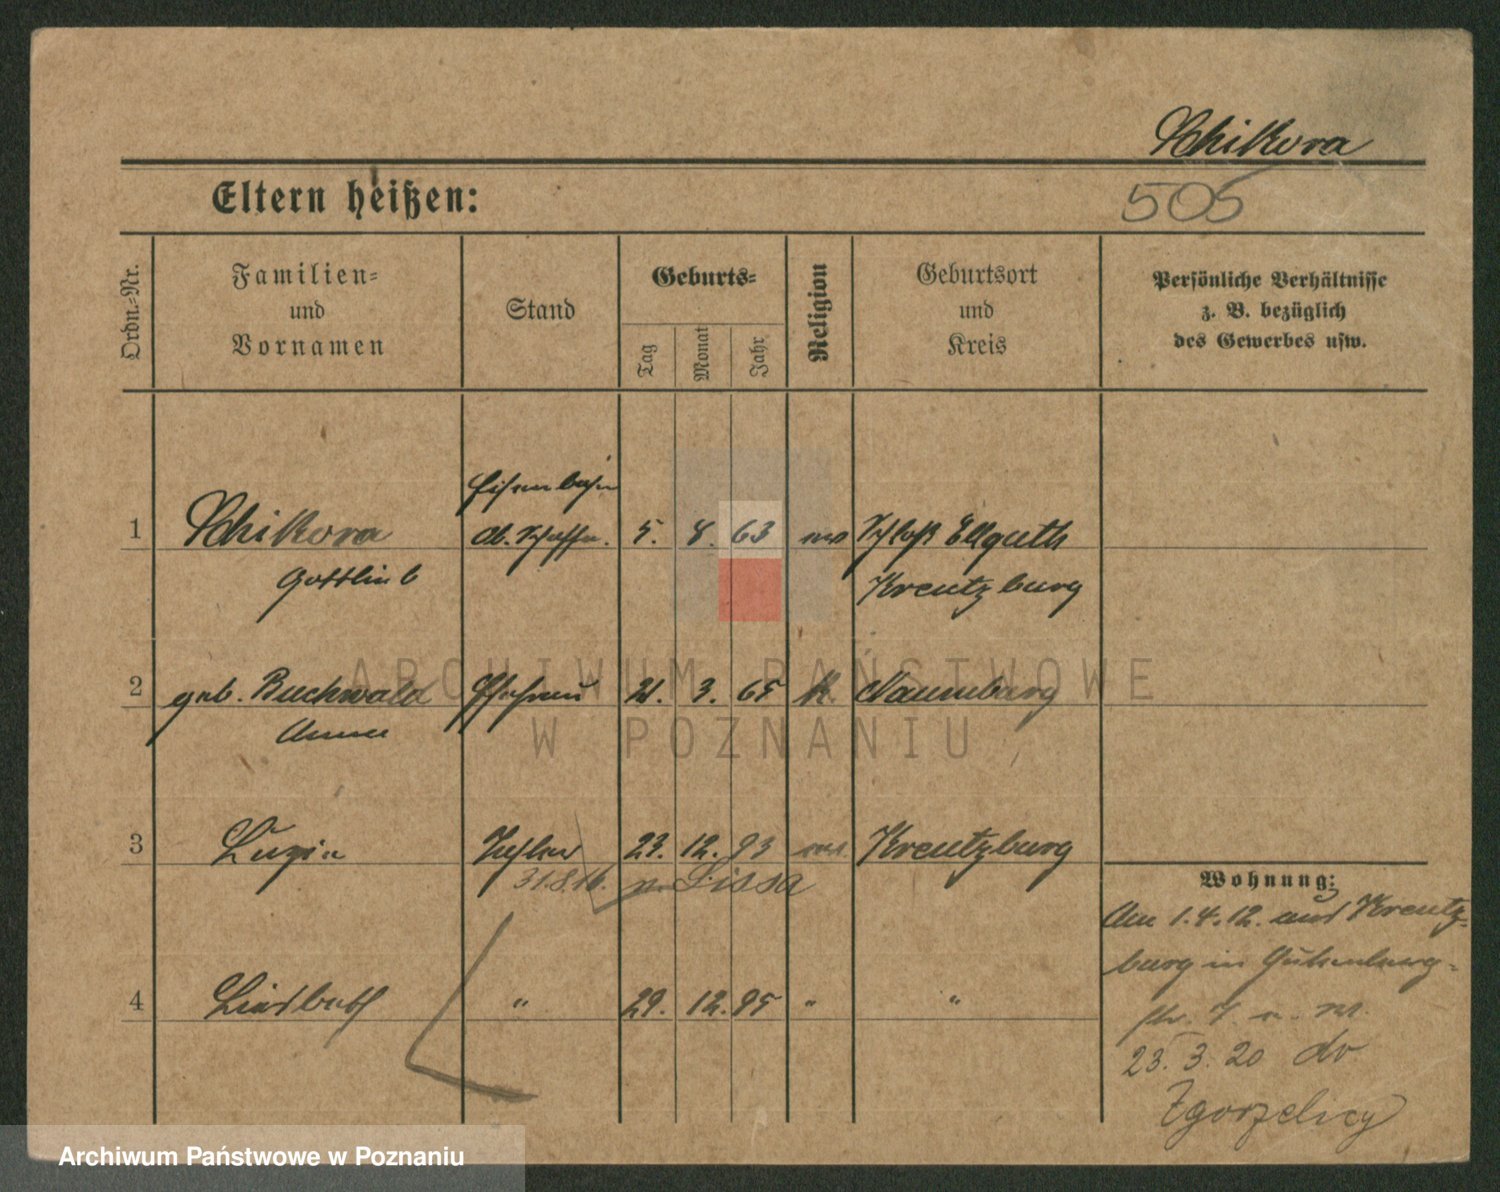 Schikora
Eltern heißen:
505
Ordn.-Nr.
Familien-
und
Vornamen
Stand
Geburts-
Tag
Monat
Jahr
Religion
Geburtsort
und
Kreis
Persönliche Verhältnisse
z. B. bezüglich
des Gewerbes usw.
Eisenbahn
1 Schikora 5. 8. 63 Schloß Ellguth
Gottlieb Kreutzburg
2 geb. Buchwald Ehefrau 21. 3. 65 k. Naumburg
Anna
3 Luzie Tochter 23. 12. 93 Kreutzburg
31.8.16. n. Lissa
Wohnung:
Am 1.4.12. aus Kreutz-
burg in Gutenberg-
str. 7
4 " 29. 12. 95 " "
23. 3. 20 do
Zgorzelicy
ARCHIWUM PAŃSTWOWE
W POZNANIU
Archiwum Państwowe w Poznaniu